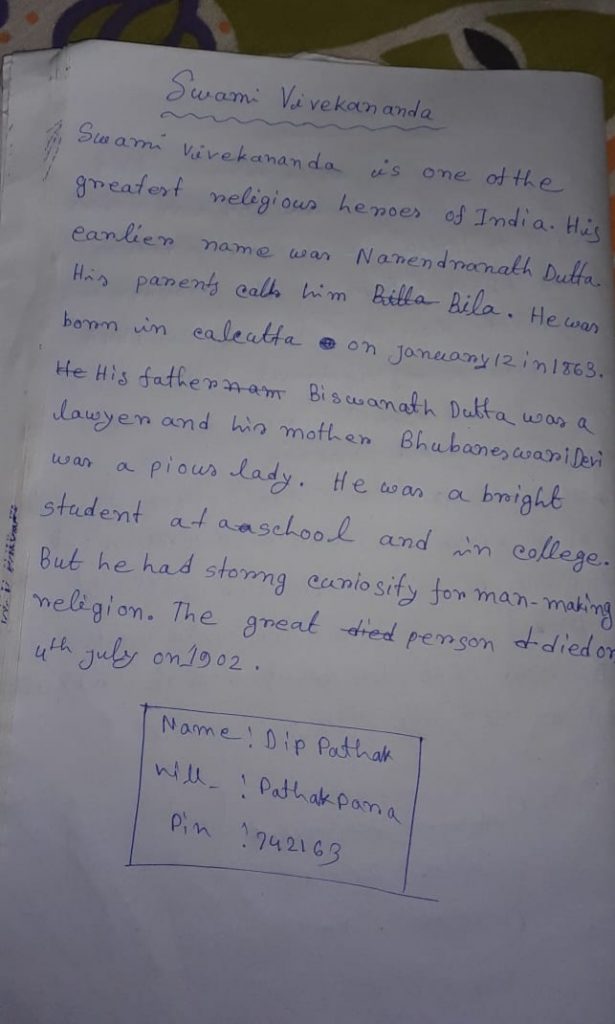 Swami Vivekananda
Swami Vivekananda is one of the
greatest religious heroes of India. His
earlier name was Narendranath Dutta.
His parents calls him Billa Bila. He was
born in calcutta on January 12 in 1863.
He His father nam Biswanath Dutta was a
lawyer and his mother Bhubaneswari Devi
was a pious lady. He was a bright
student at a school and in college.
But he had storng curiosity for man-making
religion. The great died person d died on
4th july on 1902.
Name : Dip Pathak
vill- : Pathakpara
Pin : 742163